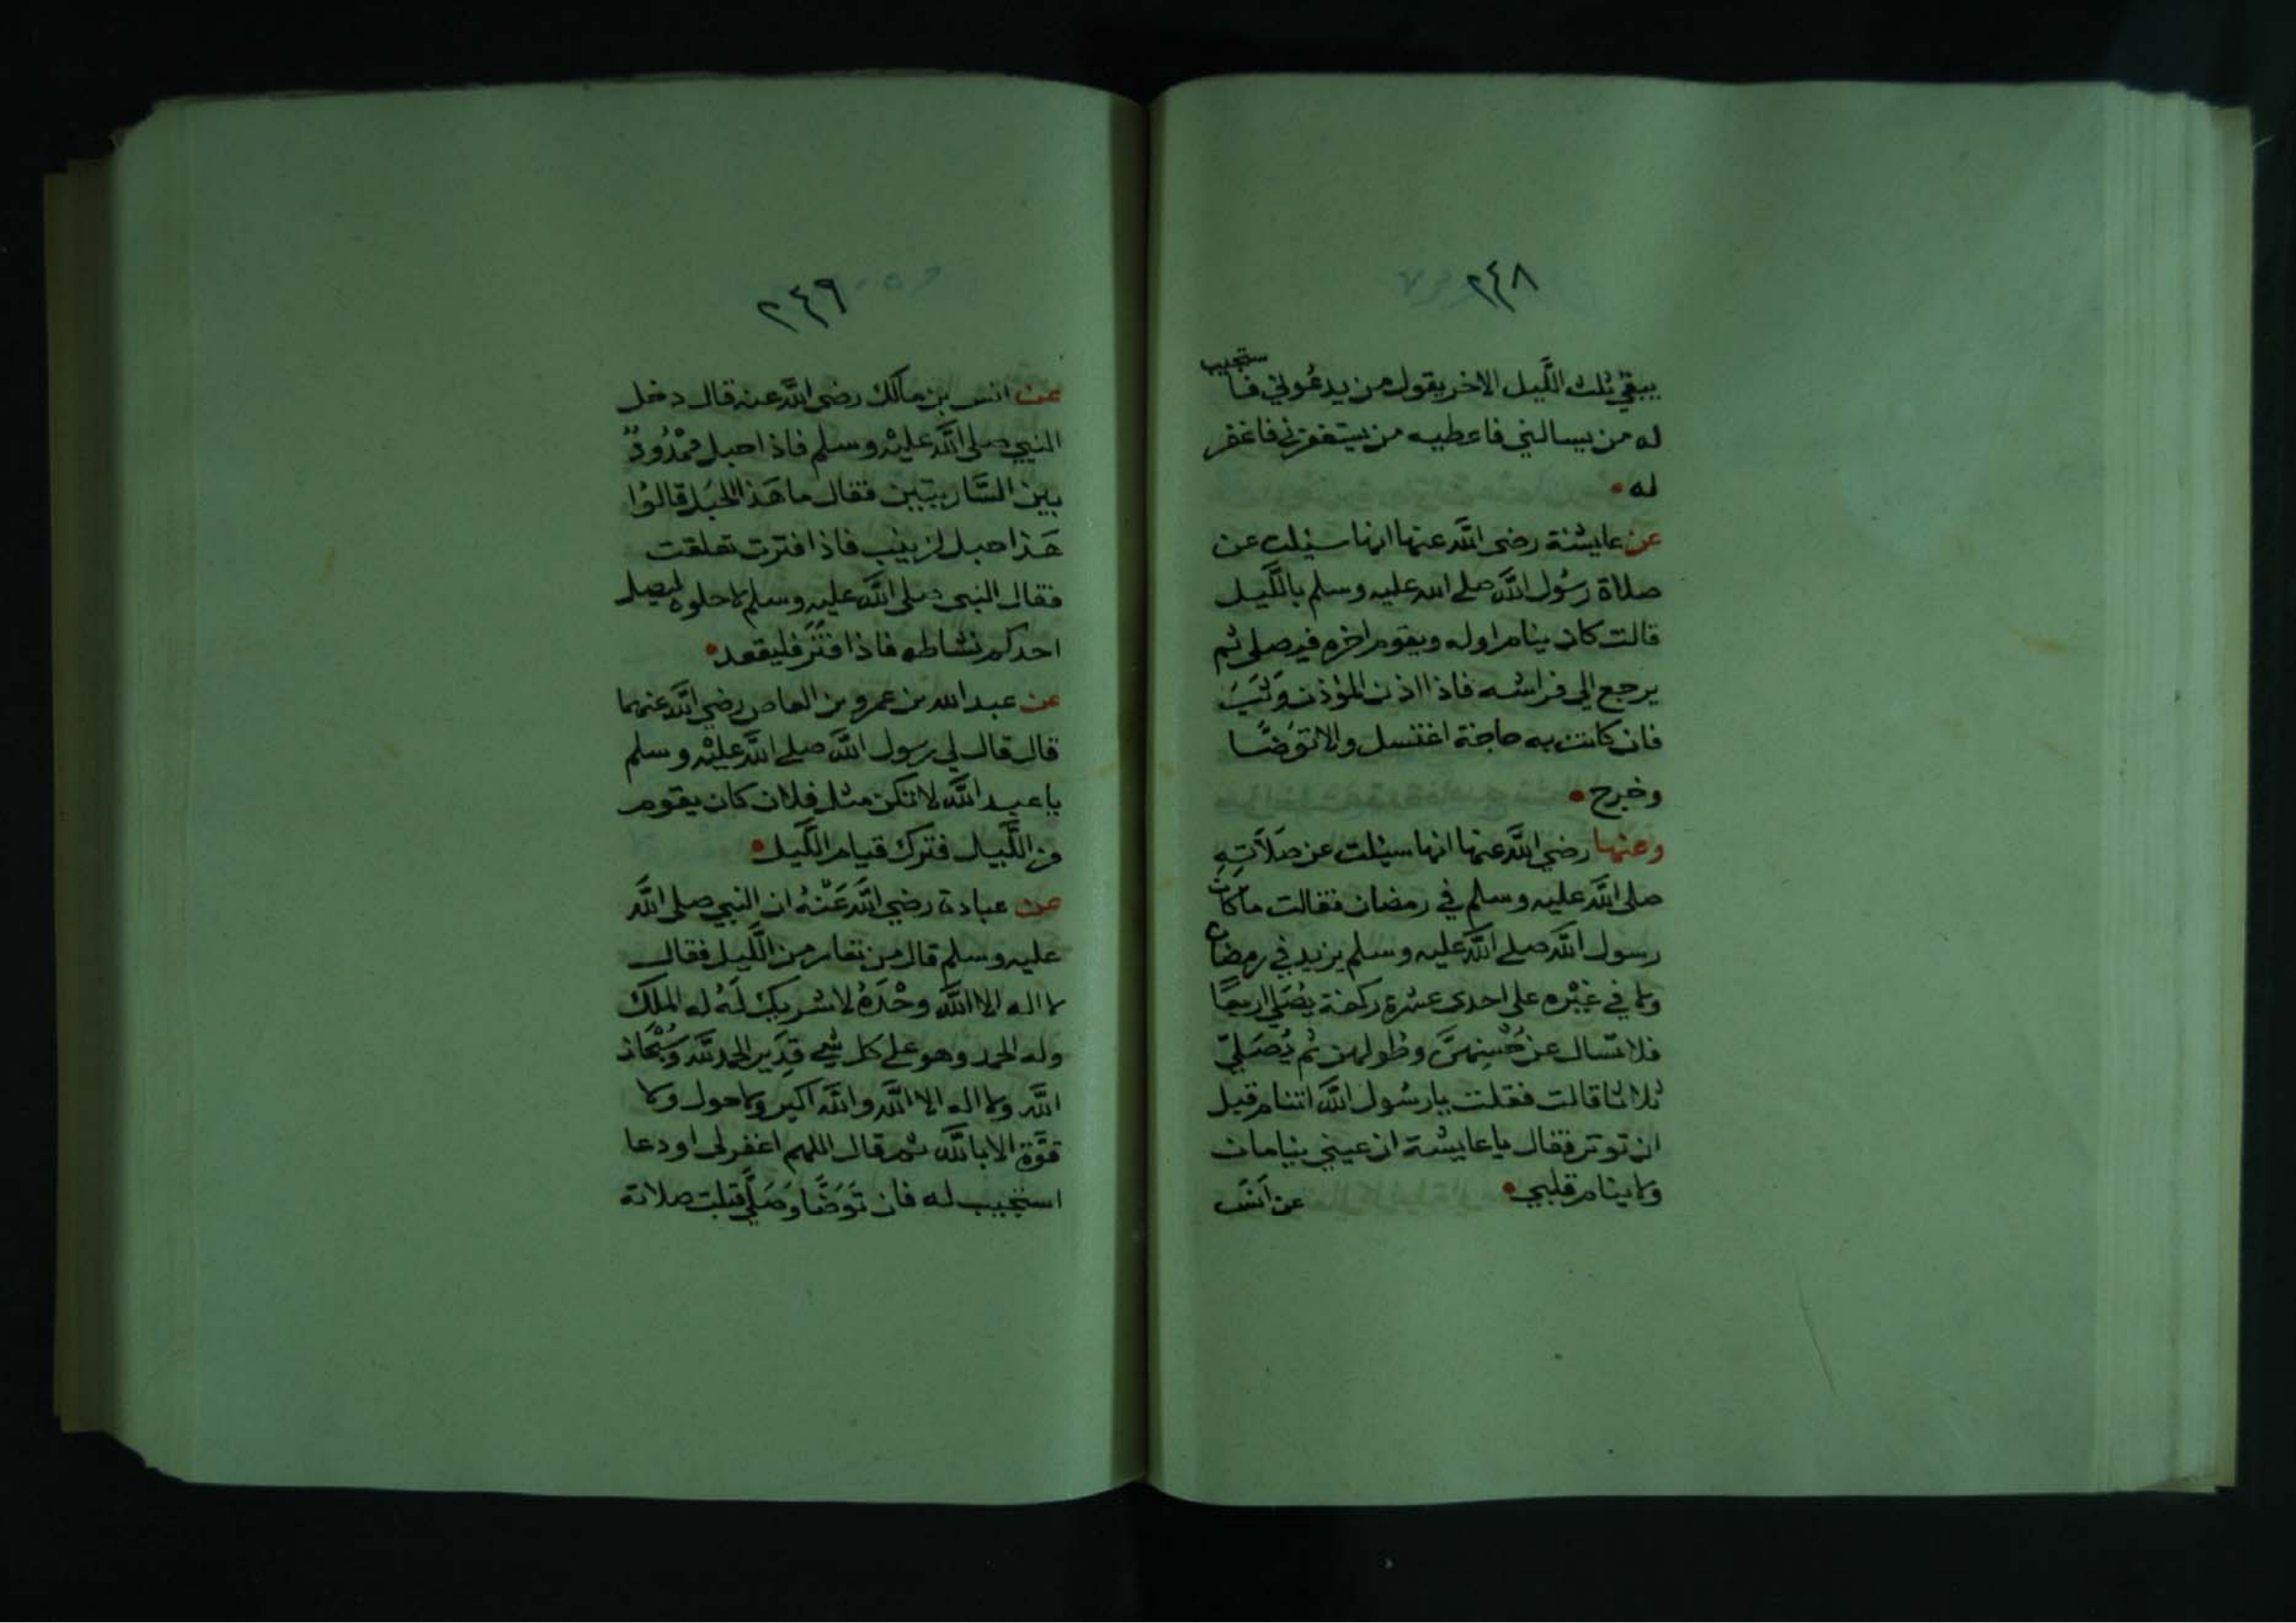 ٢٤٨
يبقي ثلث اللَّيل الاخر يقول من يدعُوني فاستجيب
له من يسالني فاعطيه من يستغفرني فاغفر
له
عن عايشة رضي اللَّه عنها انها سئيلت عن
صلاة رسُول اللَّه صلي الله عليه وسلم باللَّيل
قالت كان ينام اوله ويقوم اخره فيصلي ثم
يرجع الي فراشه فاذا اذن المؤذن وَثبَ
فان كانت به حاجة اغتسل والا توَضَّا
وخرج
وعنها رضي اللَّه عنها انها سيئلت عن صَلَاتِهِ
صلي اللَّه عليه وسلم في رمضان فقالت ما كان
رسول اللَّه صلي اللَّه عليه وسلم يزيد في رمضان
ولا في غيْره علي احدي عشرة ركعة يُصَلي اربعًا
فلا تسال عن حُسنِهنَّ وطولهن ثم يُصَلِّي
ثلاثا قالت فقلت يا رسُول اللَّه اتنام قبل
ان توتر فقال يا عايشة ان عيني ينامان
ولا ينام قلبي عن انسٍ
٢٤٩
عن انس بن مالك رضي اللَّه عنه قال دخل
النبي صلي اللَّه عليْه وسلم فاذا حبل ممْدُودٌ
بين السَّاريتين فقال ما هَذا الحَبَل قالوُا
هَذا حبل لزينب فاذا فترت تعلقت
فقال النبي صلي اللَّه عليه وسلم لا حلوه ليصل
احدكم نشاطه فاذا فتَرَ فليقعد
عن عبد الله بن عمرو بن العاص رضي اللَّه عنهما
قال قال لي رسول اللَّه صلي اللَّه عليْه وسلم
يا عبد اللَّه لا تكن مثل فلان كان يقوم
من اللَّيل فترك قيام اللَّيل
عن عبادة رضي اللَّه عَنْهُ ان النبي صلي اللَّه
عليه وسلم قال من تعار من اللَّيل فقال
لا اله الا اللَّه وحْدَهُ لا شريك لَهُ له الملك
وله الحمد وهو علي كل شي قدِير الحمد للَّه وسُبْحَان
اللَّه ولا اله الا اللَّه واللَّه اكبر ولا حول ولا
قوَّة الا باللَّه ثم قال اللهم اغفر لي او دعا
استجيب له فان تَوَضَّا وَصَلَّي قبلت صلاته